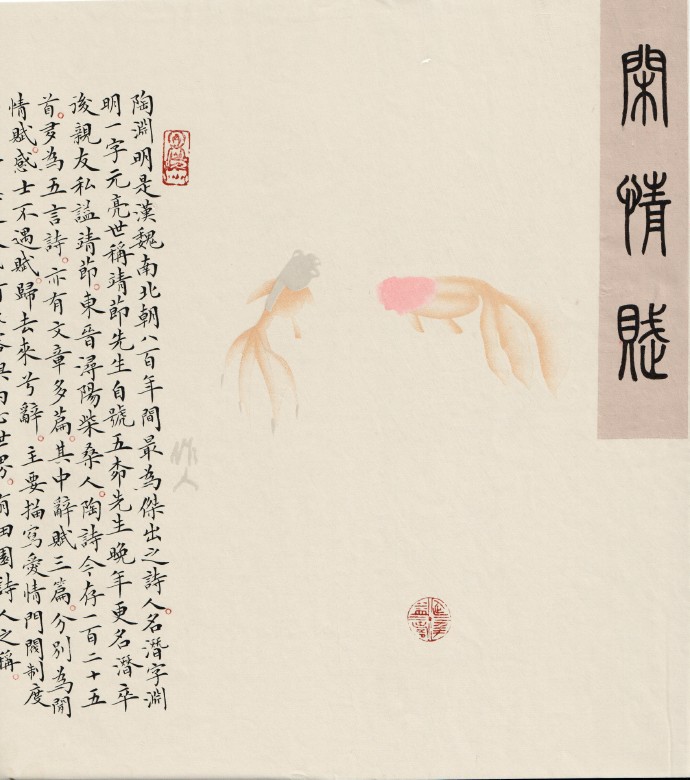 閑情賦
作人
陶淵明是漢魏南北朝八百年間最為傑出之詩人名潛字淵
明一字元亮世稱靖節先生自號五柳先生晚年更名潛卒
後親友私謚靖節東晉潯陽柴桑人陶詩今存一百二十五
首多為五言詩亦有文章多篇其中辭賦三篇分別為閒
情賦感士不遇賦歸去來兮辭主要描寫愛情門閥制度
內心世界有田園詩人之稱